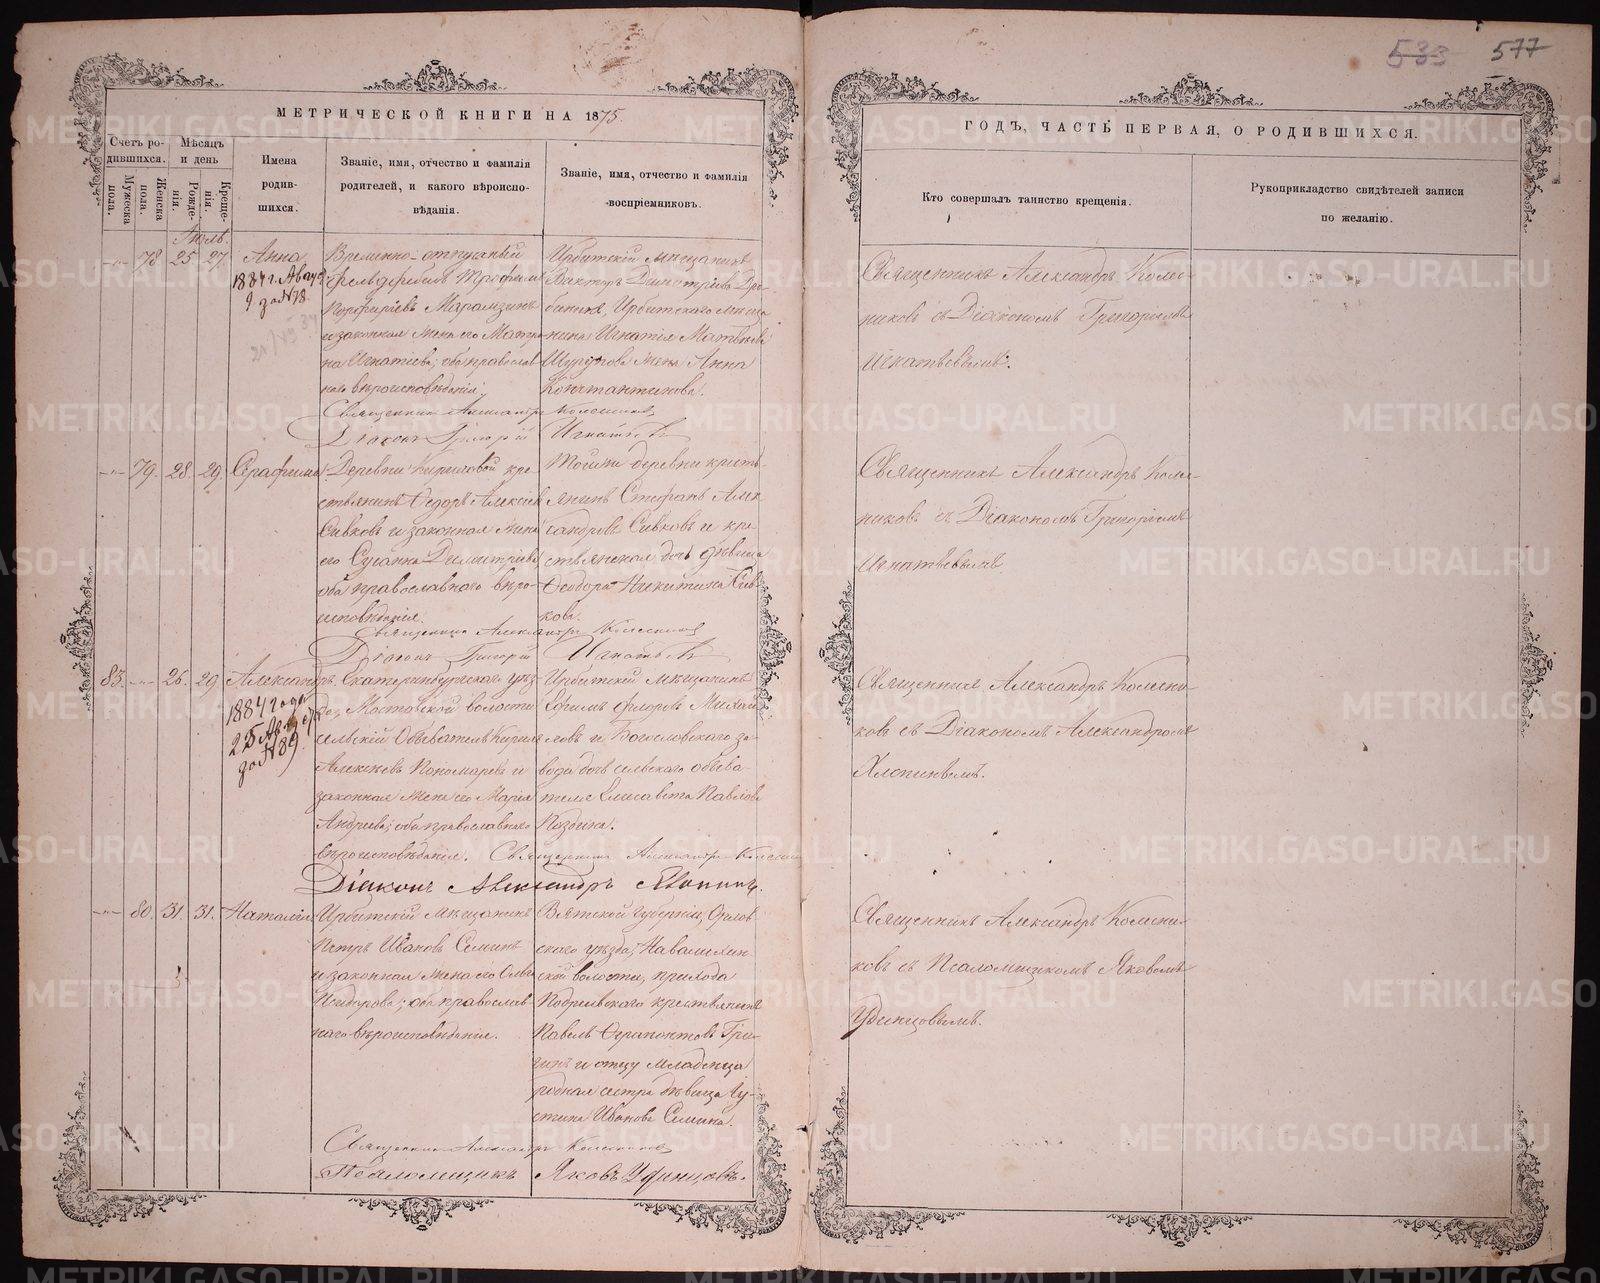 533 577
МЕТРИЧЕСКОЙ КНИГИ НА 1875.
ГОДЪ, ЧАСТЬ ПЕРВАЯ, О РОДИВШИХСЯ.
Счетъ родившихся.
Мужеска пола.
Женска пола.
Мѣсяцъ и день
Рожденія.
Крещенія.
Имена родившихся.
Званіе, имя, отчество и фамилія родителей, и какого вѣроисповѣданія.
Званіе, имя, отчество и фамилія воспріемниковъ.
Кто совершалъ таинство крещенія.
Рукоприкладство свидѣтелей записи по желанію.
Іюль.
78 25 27 Анна
1884 г. Авгу
9 за № 78.
Временно-отпускной
Трофимъ
Порфирьевъ
и законная жена его Матро
на Игнатіева; оба православ
наго вѣроисповѣданія.
Ирбитскій мѣщанинъ
Викторъ Димитріевъ Дро
бининъ, Ирбитскаго мѣща
нина Игнатія Матвѣева
Шугурова жена Анна
Константинова.
Священникъ Александръ Колес
никовъ съ Діакономъ Григоріемъ
Игнатьевымъ.
Священникъ Александръ Колесниковъ
Діаконъ Григорій Игнатьевъ
79. 28. 29. Серафима
Деревни Кириловой кре
стьянинъ Ѳедоръ Алексѣевъ
Сивковъ и законная жена
его Сусанна Димитріева
оба православнаго вѣро-
исповѣданія.
Тойже деревни кресть-
янинъ Стефанъ Алек
сандровъ Сивковъ и кре
стьянская дочь дѣвица
Ѳеодора Никитина Сив
кова.
Священникъ Александръ Колес
никовъ съ Діакономъ Григоріемъ
Игнатьевымъ
Священникъ Александръ Колесниковъ
Діаконъ Григорій Игнатьевъ
83. 26. 29 Александръ.
1884 года
25 Августа
за № 89
Екатеринбургскаго уѣз
да, Мостовской волости
сельскій Обыватель Кирилъ
Алексѣевъ Пономаревъ и
законная жена его Марія
Андреева; оба православнаго
вѣроисповѣданія.
Ирбитскій мѣщанинъ
Ефимъ Флоровъ Михай
ловъ и Богословскаго за-
вода дочь сельскаго обыва-
теля Елисавета Павлова
Поздина.
Священникъ Александръ Колесни
ковъ съ Діакономъ Александромъ
Хлопинымъ.
Священникъ Александръ Колесни
Діаконъ Александръ Хлопинъ.
80. 31. 31. Наталія
Ирбитскій мѣщанинъ
Петръ Ивановъ Семинъ
и законная жена его Ольга
Исидорова; оба православ-
наго вѣроисповѣданія.
Вятской губерніи, Орлов
скаго уѣзда,
ской волости, прихода
крестьянинъ
Павелъ Ѳерапонтовъ
и отцу младенца
родная сестра дѣвица Іу-
стина Иванова Семина.
Священникъ Александръ Колесни-
ковъ съ Псаломщикомъ Яковомъ
Удинцовымъ.
Священникъ Александръ Колесниковъ
Псаломщикъ Яковъ Удинцовъ.
METRIKI.GASO-URAL.RU